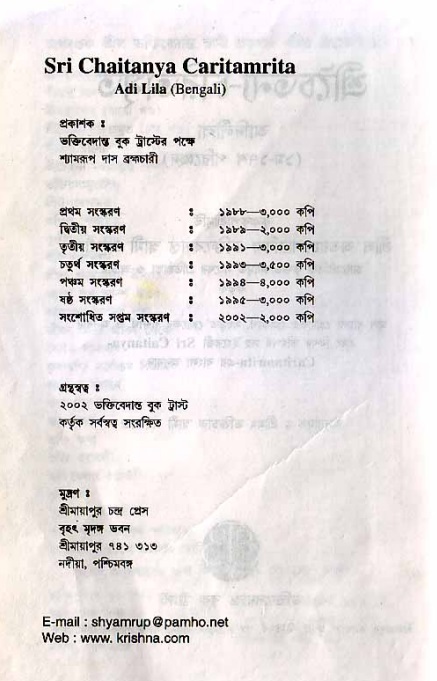 Sri Chaitanya Caritamrita
Adi Lila (Bengali)
প্রকাশক ঃ
ভক্তিবেদান্ত বুক ট্রাস্টের পক্ষে
শ্যামরূপ দাস ব্রহ্মচারী
প্রথম সংস্করণ ঃ ১৯৮৮—৩,০০০ কপি
দ্বিতীয় সংস্করণ ঃ ১৯৮৯—২,০০০ কপি
তৃতীয় সংস্করণ ঃ ১৯৯১—৩,০০০ কপি
চতুর্থ সংস্করণ ঃ ১৯৯৩—৩,৫০০ কপি
পঞ্চম সংস্করণ ঃ ১৯৯৪—৪,০০০ কপি
ষষ্ঠ সংস্করণ ঃ ১৯৯৫—৩,০০০ কপি
সংশোধিত সপ্তম সংস্করণ ঃ ২০০২—২,০০০ কপি
গ্রন্থস্বত্ব ঃ
২০০২ ভক্তিবেদান্ত বুক ট্রাস্ট
কর্তৃক সর্বস্বত্ব সংরক্ষিত
মুদ্রণ ঃ
শ্রীমায়াপুর চন্দ্র প্রেস
বৃহৎ মৃদঙ্গ ভবন
শ্রীমায়াপুর ৭৪১ ৩১৩
নদীয়া, পশ্চিমবঙ্গ
E-mail : shyamrup@pamho.net
Web : www. krishna.com